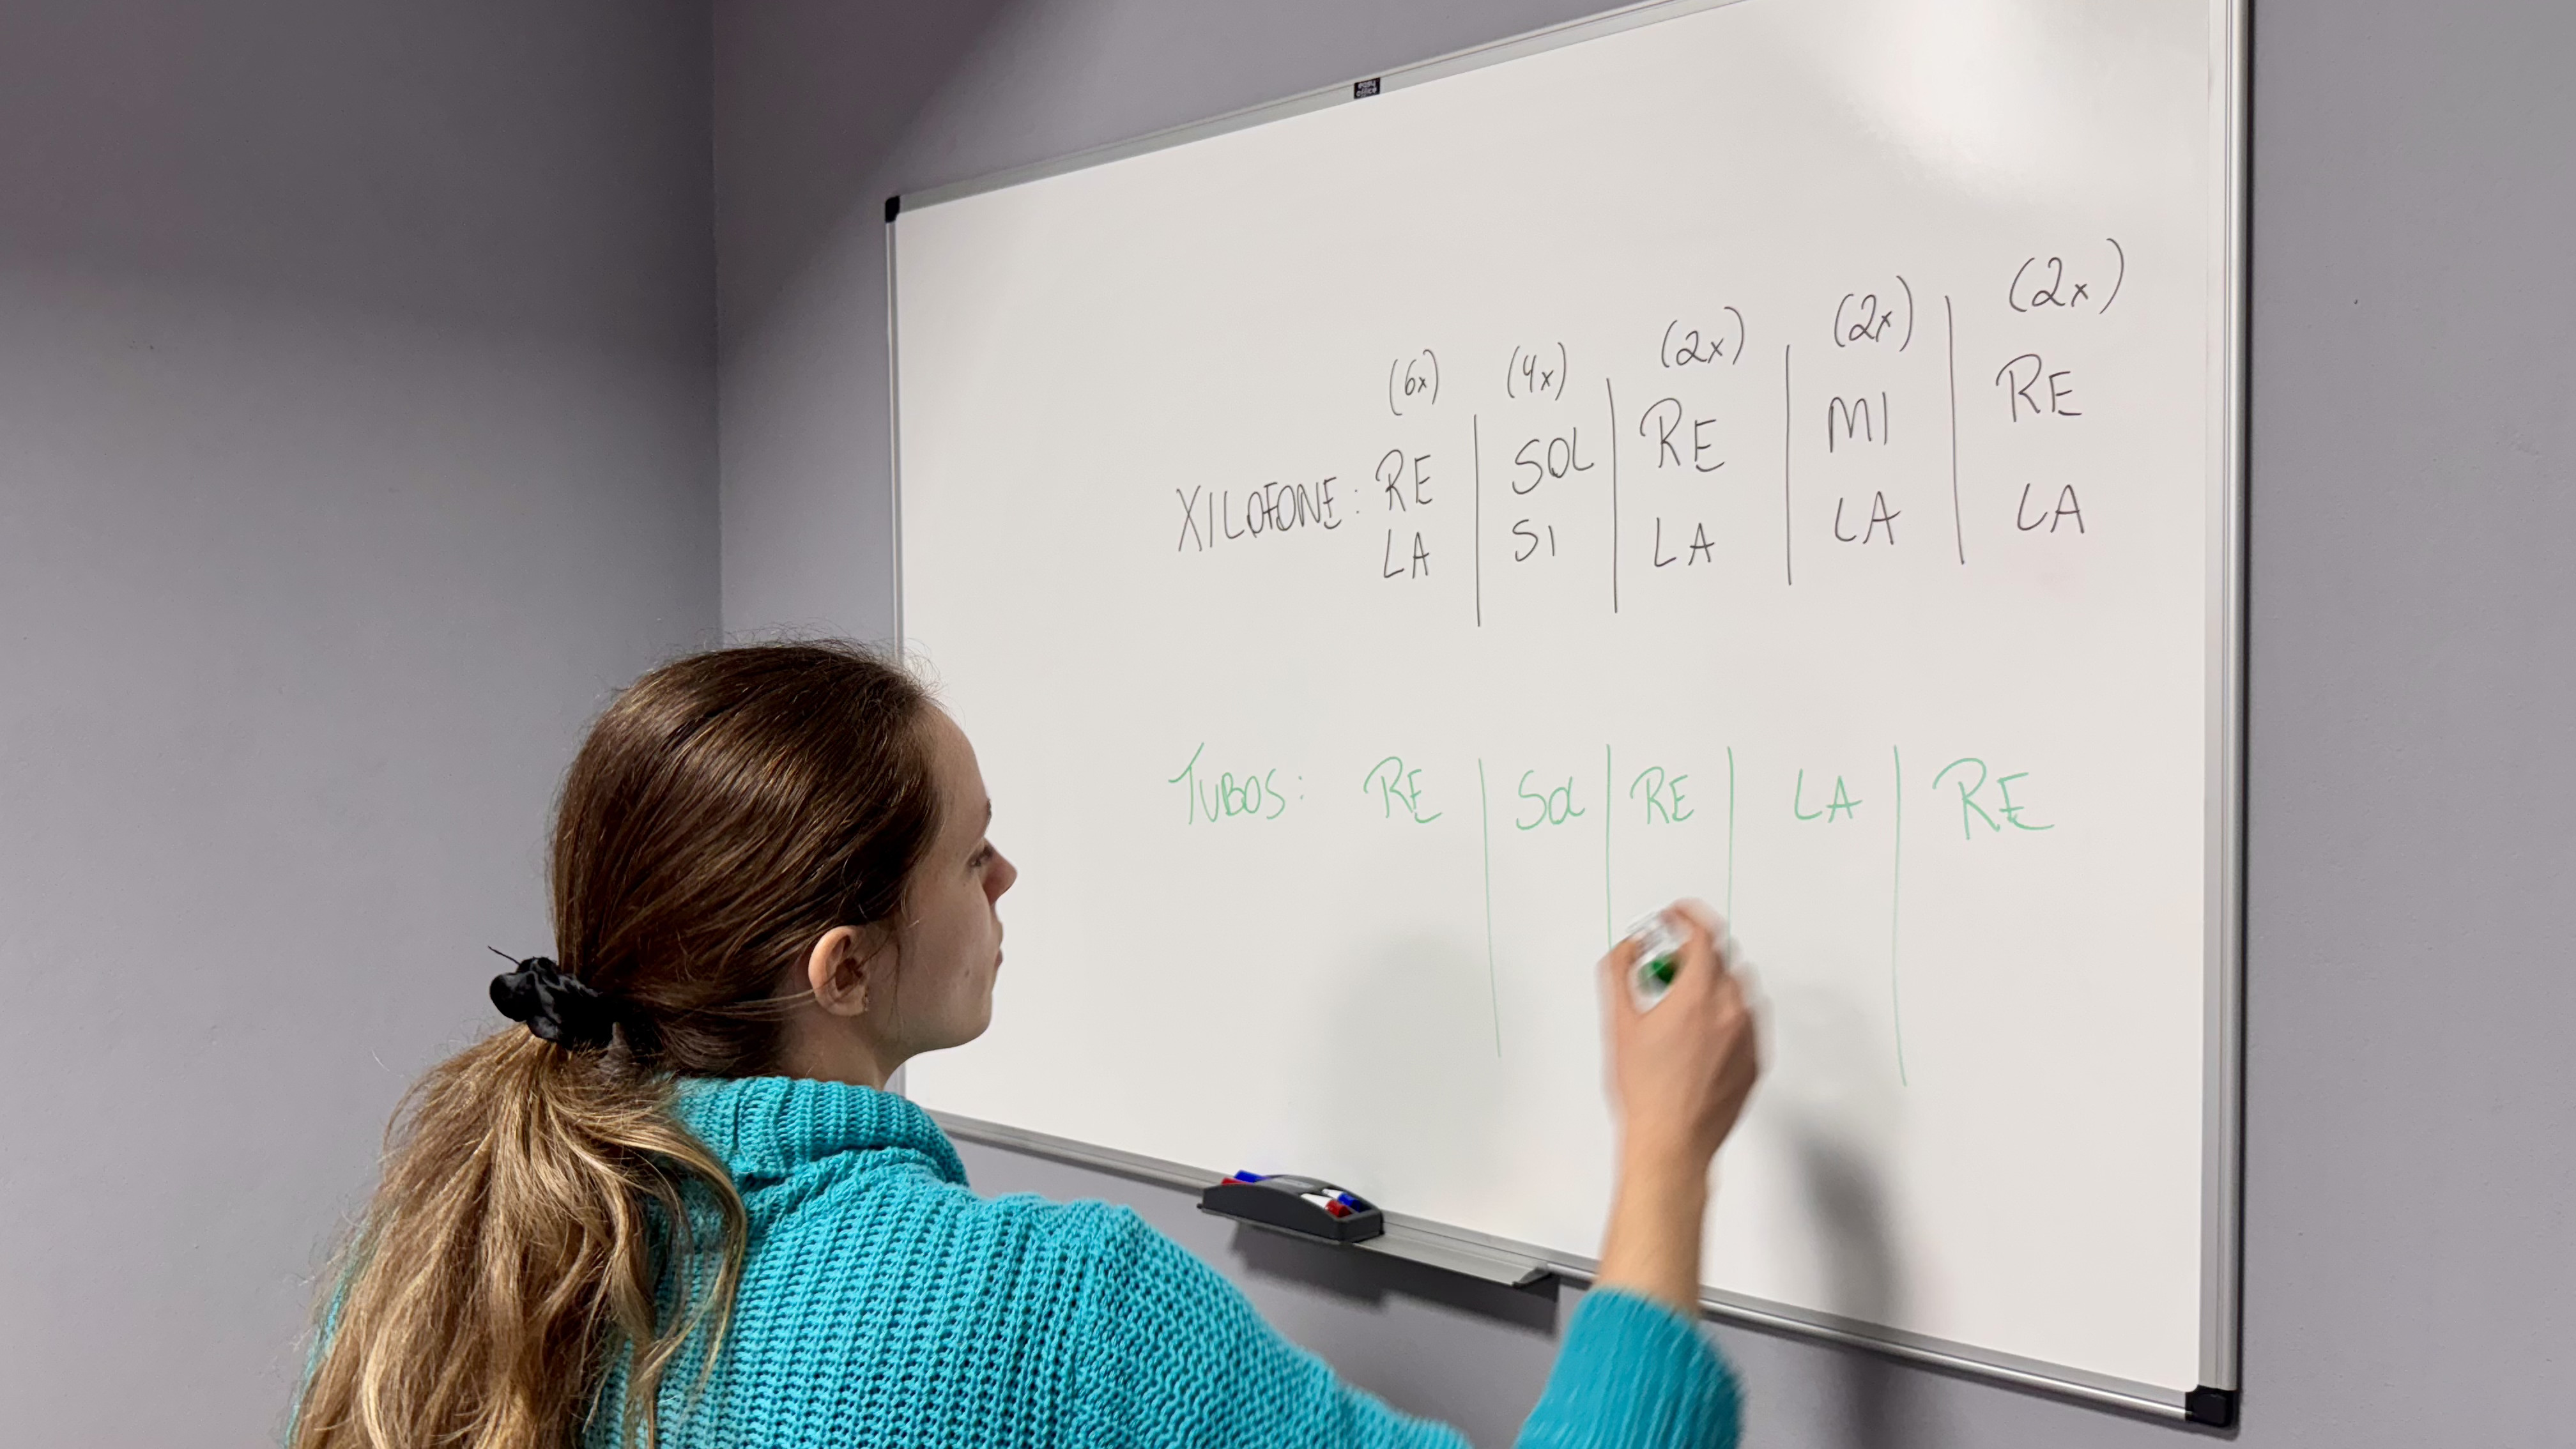 easy office
(6x) (4x) (2x) (2x) (2x)
XILOFONE: RE | SOL | RE | MI | RE
LA | SI | LA | LA | LA
TUBOS: RE | Sol | RE | LA | RE